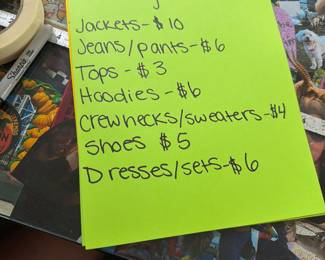 Jackets-$10
Jeans/pants-$6
Tops-$3
Hoodies-$6
Crewnecks/sweaters-$4
Shoes $5
Dresses/sets-$6
Sharpie